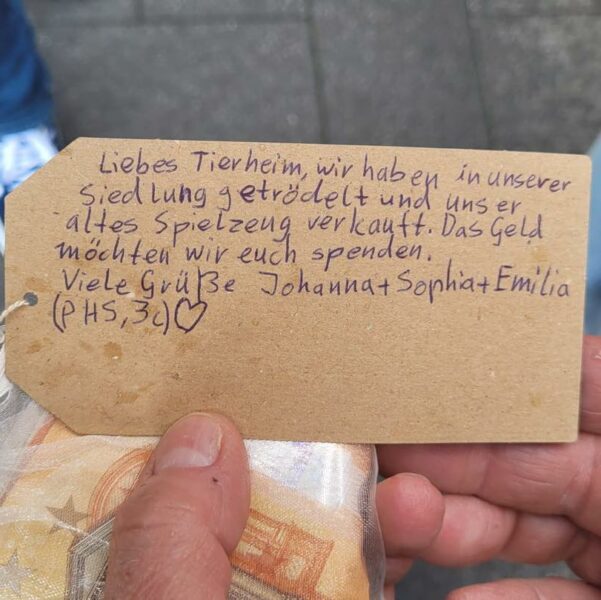 Liebes Tierheim, wir haben in unserer
Siedlung getrödelt und unser
altes Spielzeug verkauft. Das Geld
möchten wir euch spenden.
Viele Grüße Johanna+Sophia+Emilia
(PHS,3c)♡